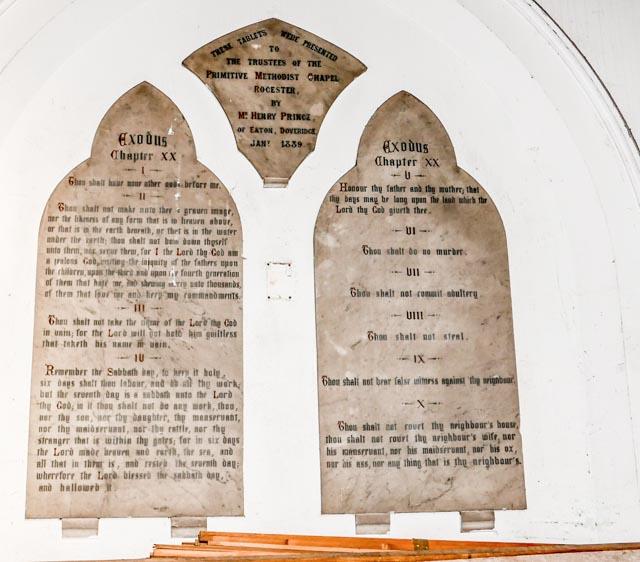 THESE TABLETS WERE PRESENTED
TO
THE TRUSTEES OF THE
PRIMITIVE METHODIST CHAPEL
ROCESTER,
BY
MR HENRY PRINCE,
OF EATON, DOVERIDGE.
JANY 1889
EXODUS
Chapter XX
I
Thou shalt have none other gods before me.
II
Thou shalt not make unto thee a graven image,
nor the likeness of any form that is in heaven above,
or that is in the earth beneath, or that is in the water
under the earth; thou shalt not bow down thyself
unto them, nor serve them, for I the Lord thy God am
a jealous God, visiting the iniquity of the fathers upon
the children, upon the third and upon the fourth generation
of them that hate me, and shewing mercy unto thousands,
of them that love me and keep my commandments.
III
Thou shalt not take the name of the Lord thy God
in vain; for the Lord will not hold him guiltless
that taketh his name in vain.
IV
Remember the Sabbath day, to keep it holy,
six days shalt thou labour, and do all thy work;
but the seventh day is a sabbath unto the Lord
thy God; in it thou shalt not do any work, thou,
nor thy son, nor thy daughter, thy manservant,
nor thy maidservant, nor thy cattle, nor thy
stranger that is within thy gates; for in six days
the Lord made heaven and earth, the sea, and
all that in them is, and rested the seventh day;
wherefore the Lord blessed the sabbath day,
and hallowed it.
EXODUS
Chapter XX
V
Honour thy father and thy mother; that
thy days may be long upon the land which the
Lord thy God giveth thee.
VI
Thou shalt do no murder.
VII
Thou shalt not commit adultery
VIII
Thou shalt not steal.
IX
Thou shalt not bear false witness against thy neighbour.
X
Thou shalt not covet thy neighbour's house,
thou shalt not covet thy neighbour's wife, nor
his manservant, nor his maidservant, nor his ox,
nor his ass, nor any thing that is thy neighbour's.